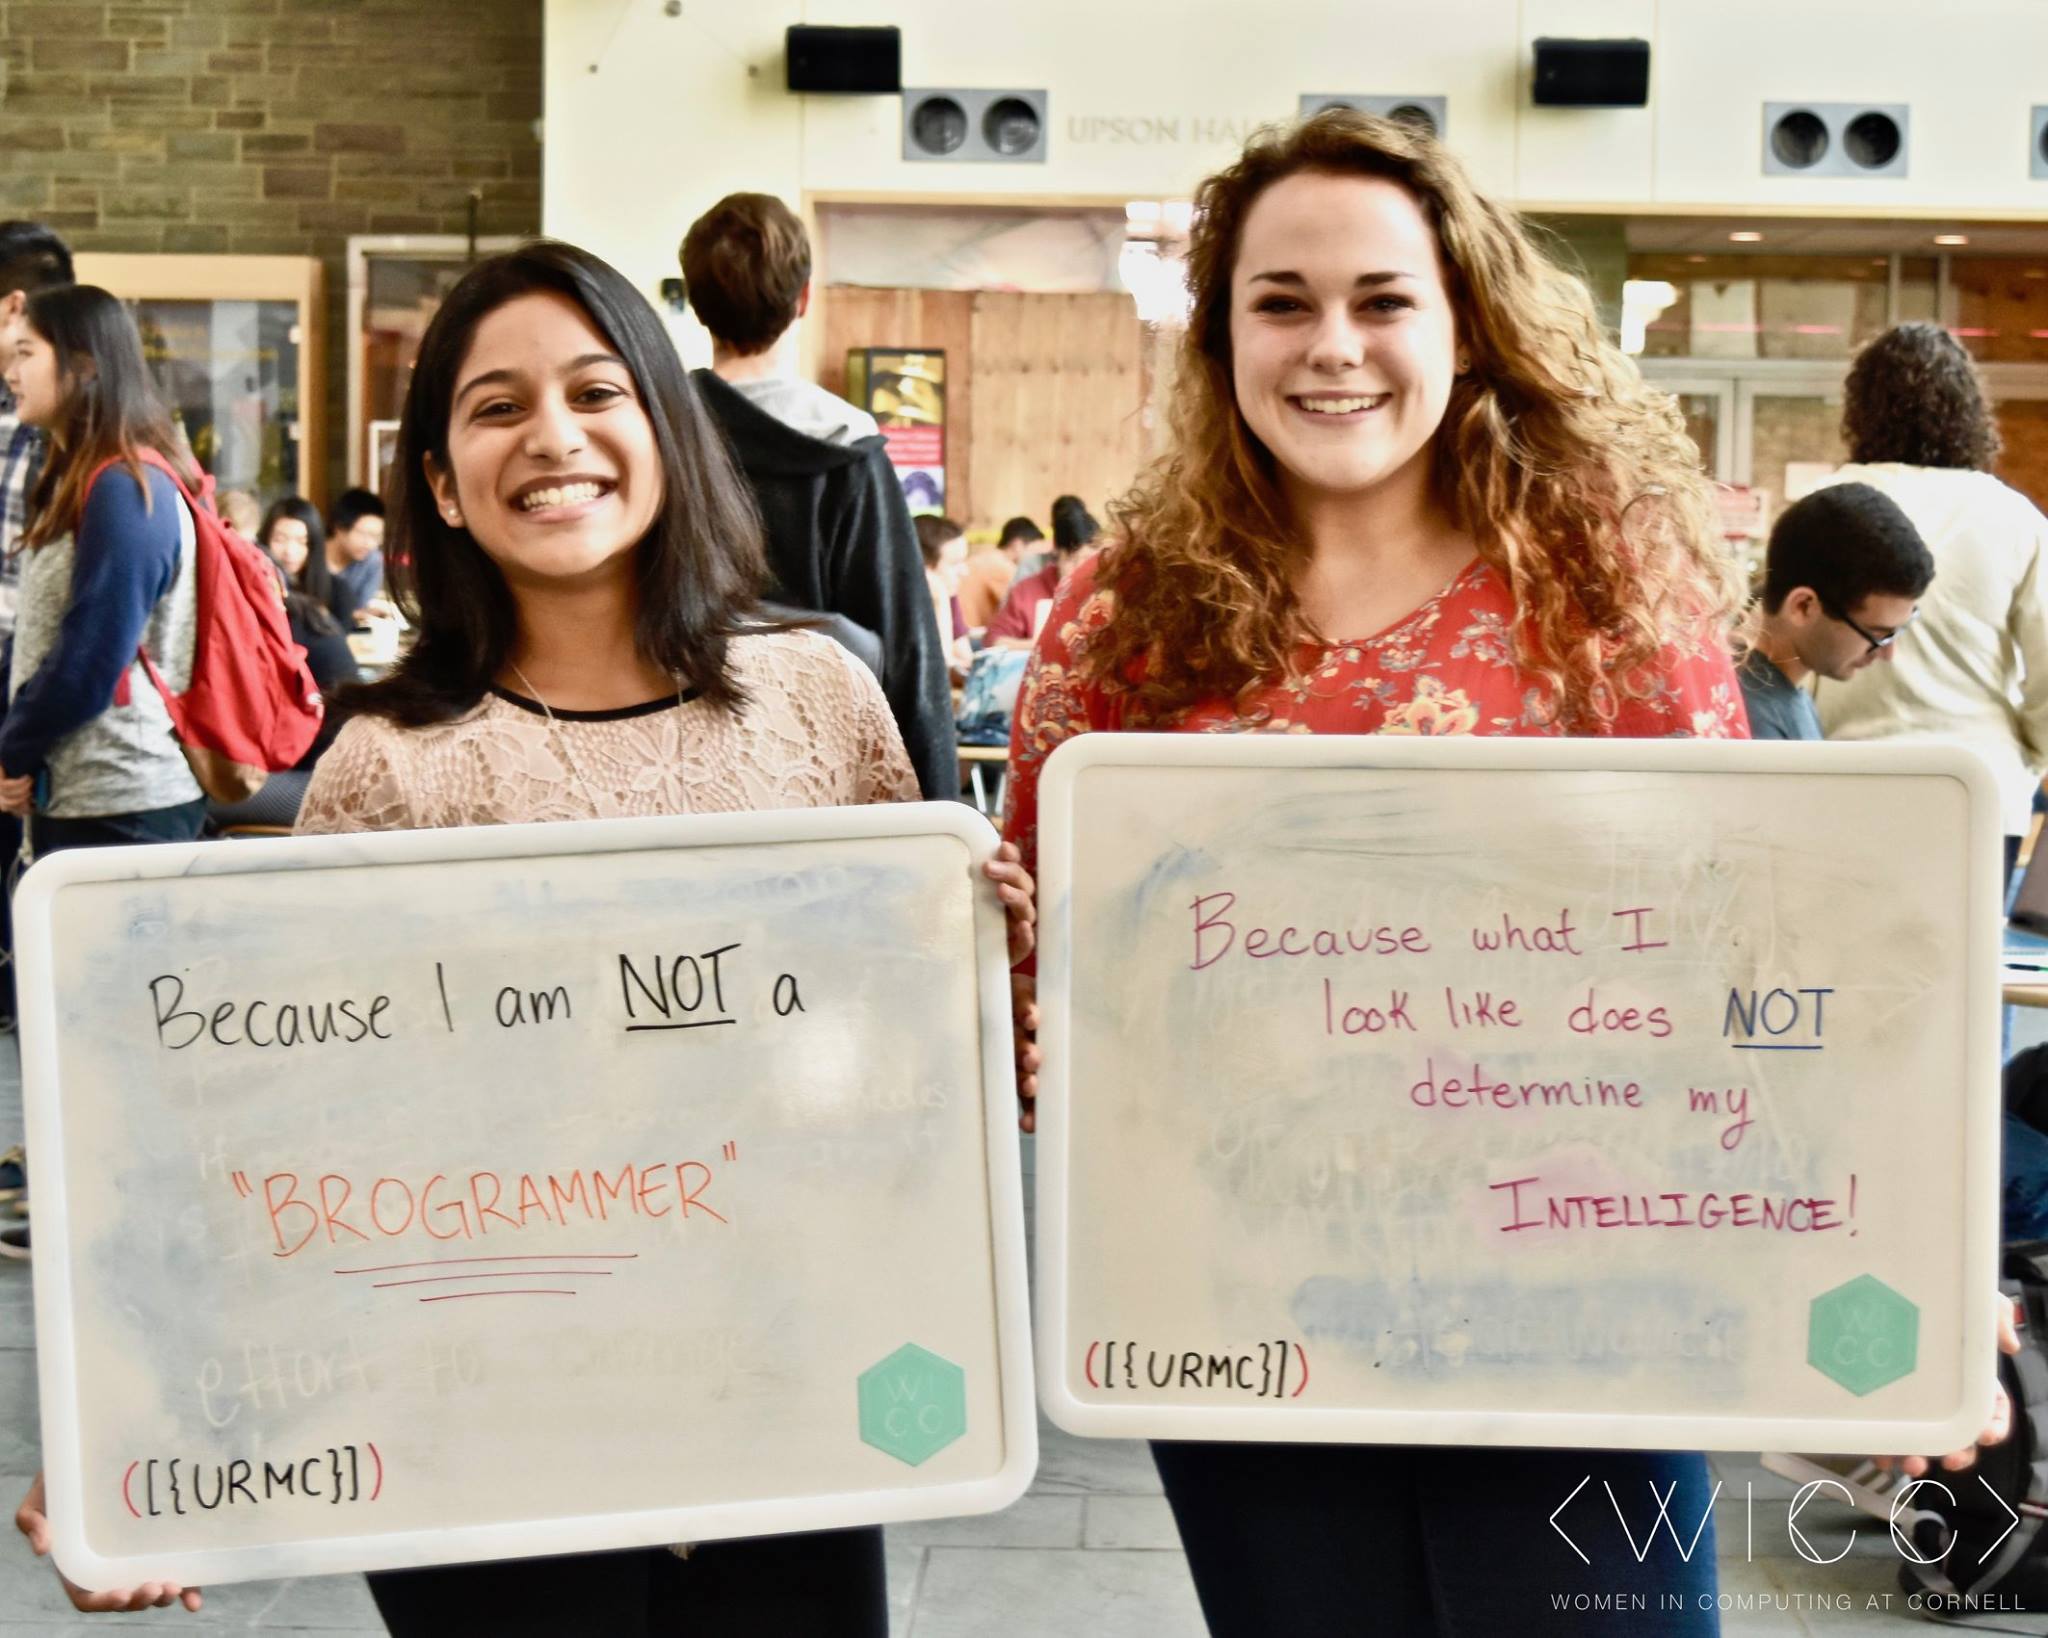 UPSON HALL
Because I am NOT a
"BROGRAMMER"
effort to
([{URMC}])
WI
CC
Because what I
look like does NOT
determine my
INTELLIGENCE!
([{URMC}])
WI
CC
<WICC>
WOMEN IN COMPUTING AT CORNELL